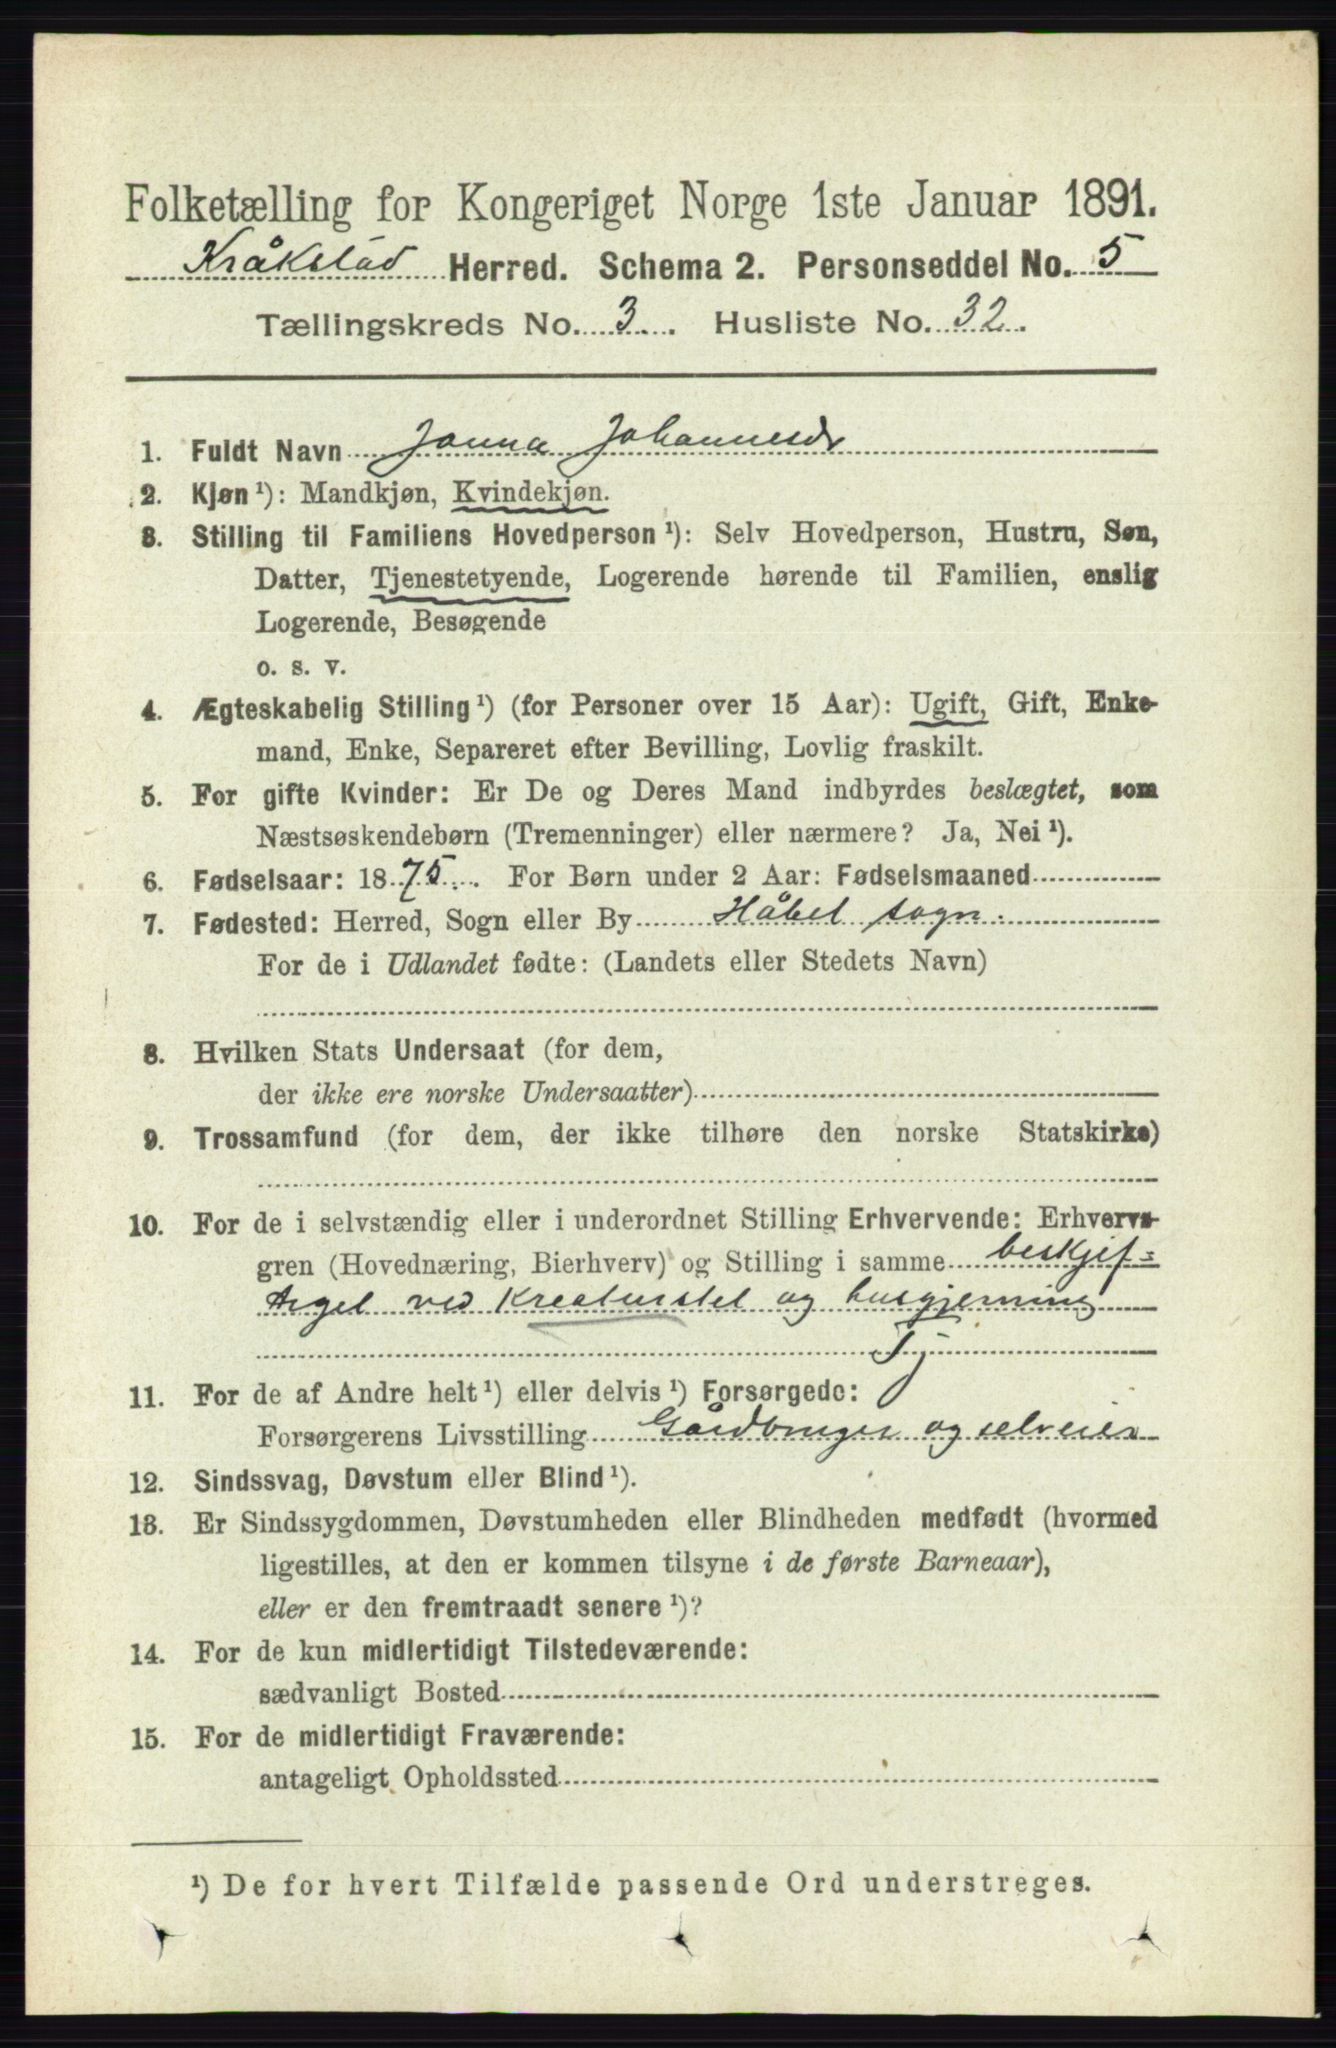 Folketælling for Kongeriget Norge 1ste Januar 1891.
Kråkstad Herred. Schema 2. Personseddel No. 5
Tællingskreds No. 3. Husliste No. 32.
1. Fuldt Navn Janna Johannesdr
2. Kjøn ¹): Mandkjøn, Kvindekjøn.
3. Stilling til Familiens Hovedperson ¹): Selv Hovedperson, Hustru, Søn,
Datter, Tjenestetyende, Logerende hørende til Familien, enslig
Logerende, Besøgende
o. s. v.
4. Ægteskabelig Stilling ¹) (for Personer over 15 Aar): Ugift, Gift, Enke-
mand, Enke, Separeret efter Bevilling, Lovlig fraskilt.
5. For gifte Kvinder: Er De og Deres Mand indbyrdes beslægtet, som
Næstsøskendebørn (Tremenninger) eller nærmere? Ja, Nei ¹).
6. Fødselsaar: 1875. For Børn under 2 Aar: Fødselsmaaned
7. Fødested: Herred, Sogn eller By Håbel sogn.
For de i Udlandet fødte: (Landets eller Stedets Navn)
8. Hvilken Stats Undersaat (for dem,
der ikke ere norske Undersaatter)
9. Trossamfund (for dem, der ikke tilhøre den norske Statskirke)
10. For de i selvstændig eller i underordnet Stilling Erhvervende: Erhvervs-
gren (Hovednæring, Bierhverv) og Stilling i samme beskjef=
tiget ved Kreaturstel og husgjerning
Tj
11. For de af Andre helt ¹) eller delvis ¹) Forsørgede:
Forsørgerens Livsstilling Gårdbruger og selveier
12. Sindssvag, Døvstum eller Blind ¹).
13. Er Sindssygdommen, Døvstumheden eller Blindheden medfødt (hvormed
ligestilles, at den er kommen tilsyne i de første Barneaar),
eller er den fremtraadt senere ¹)?
14. For de kun midlertidigt Tilstedeværende:
sædvanligt Bosted
15. For de midlertidigt Fraværende:
antageligt Opholdssted
¹) De for hvert Tilfælde passende Ord understreges.